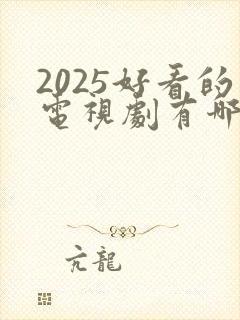 2025好看的
電視劇有哪
亢龍